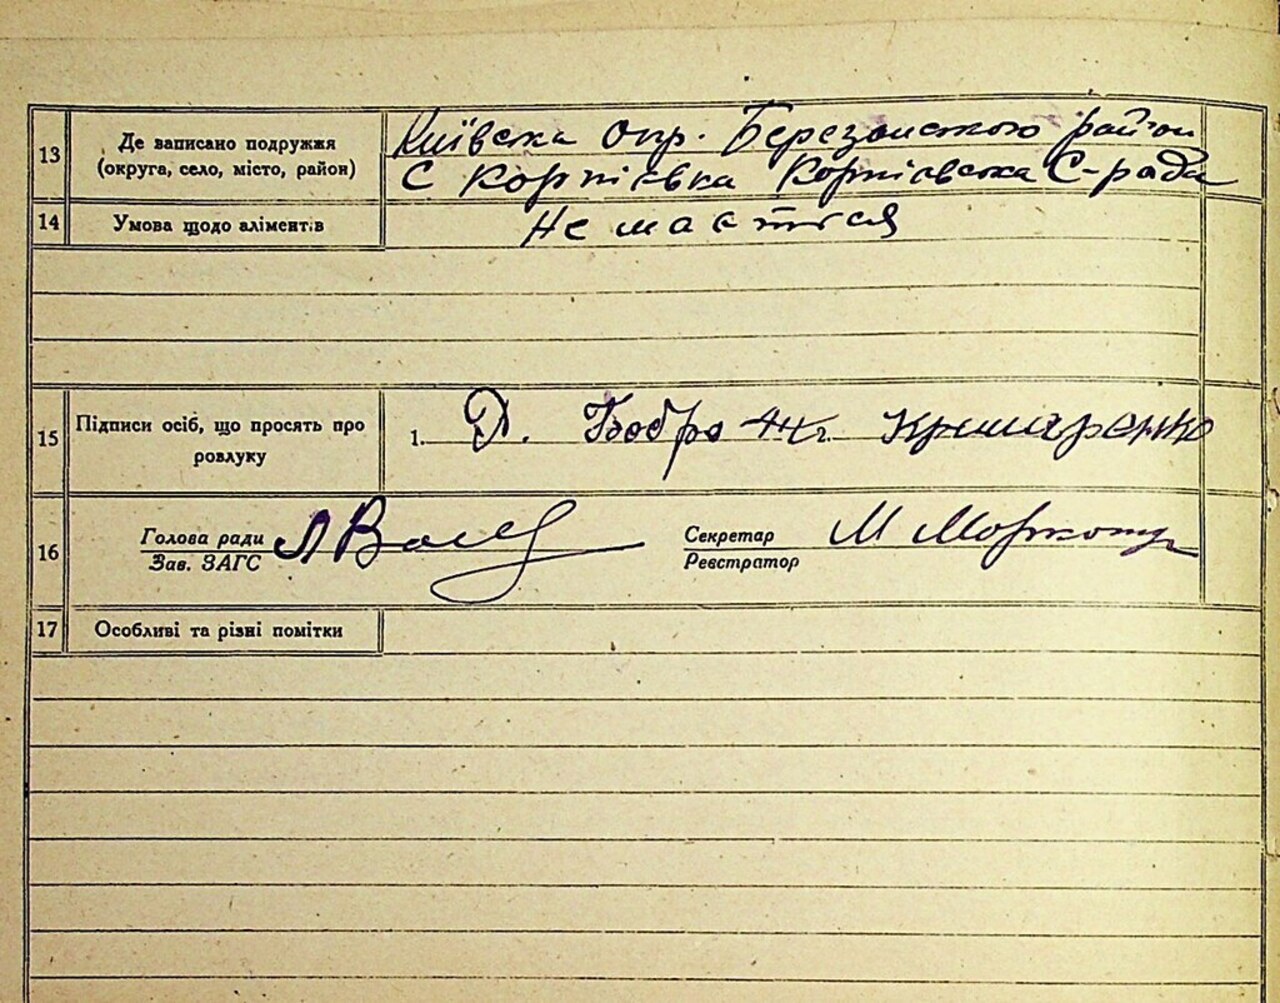 13 Де записано подружжя
(округа, село, місто, район)
Київська окр. Березанського район
С Корніївка Корніівська С-рада
14 Умова щодо аліментів
Не мається
15 Підписи осіб, що просять про
розлуку
1. Д. Бобро
16 Голова ради
Зав. ЗАГС
Секретар М
Реєстратор
17 Особливі та різні помітки